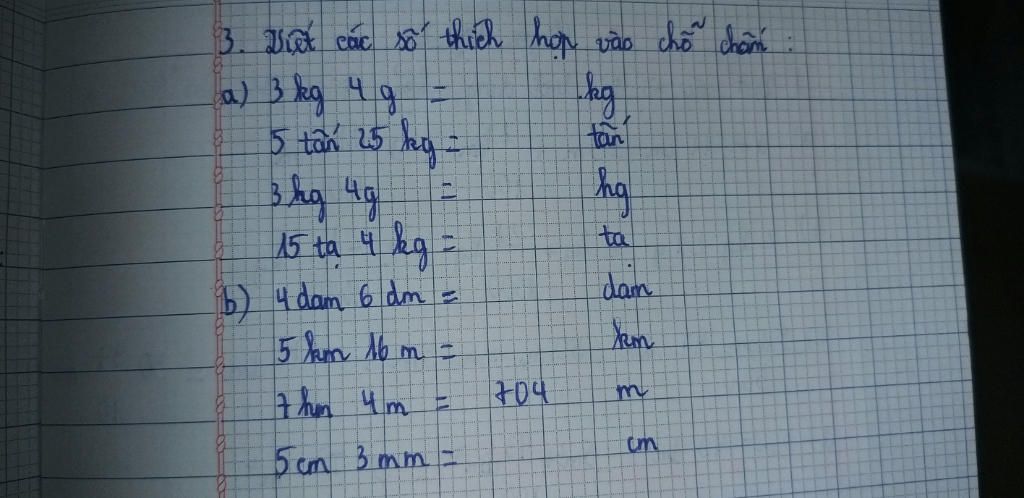 3. Viết các số thích hợp vào chỗ chấm :
a) 3 kg 4 g = kg
5 tấn 25 kg = tấn
3 hg 4g = hg
15 tạ 4 kg = tạ
b) 4 dam 6 dm = dam
5 km 16 m = km
7 hm 4 m = 704 m
5 cm 3 mm = cm